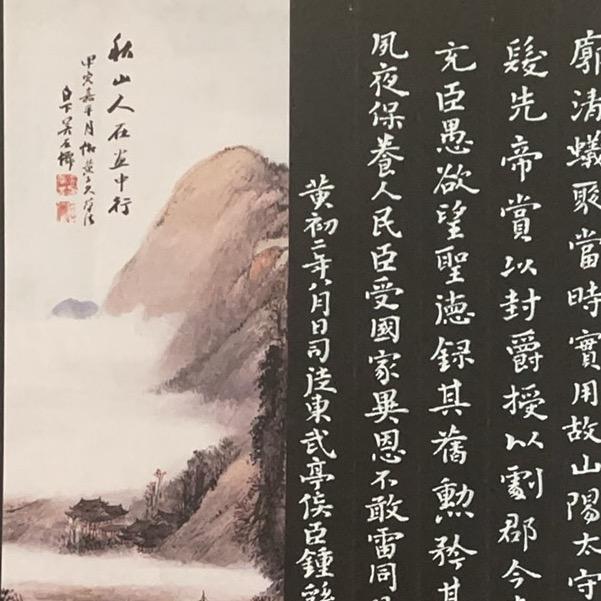 廓清蟻聚當時實用故山陽太守
髮先帝賞以封爵授以劇郡今
充臣愚欲望聖德録其舊勲矜其
夙夜保養人民臣受國家異恩不敢雷同
黄初二年八月日司徒東武亭侯臣鍾繇
秋山人在画中行
甲寅嘉平月
白下吴石僊